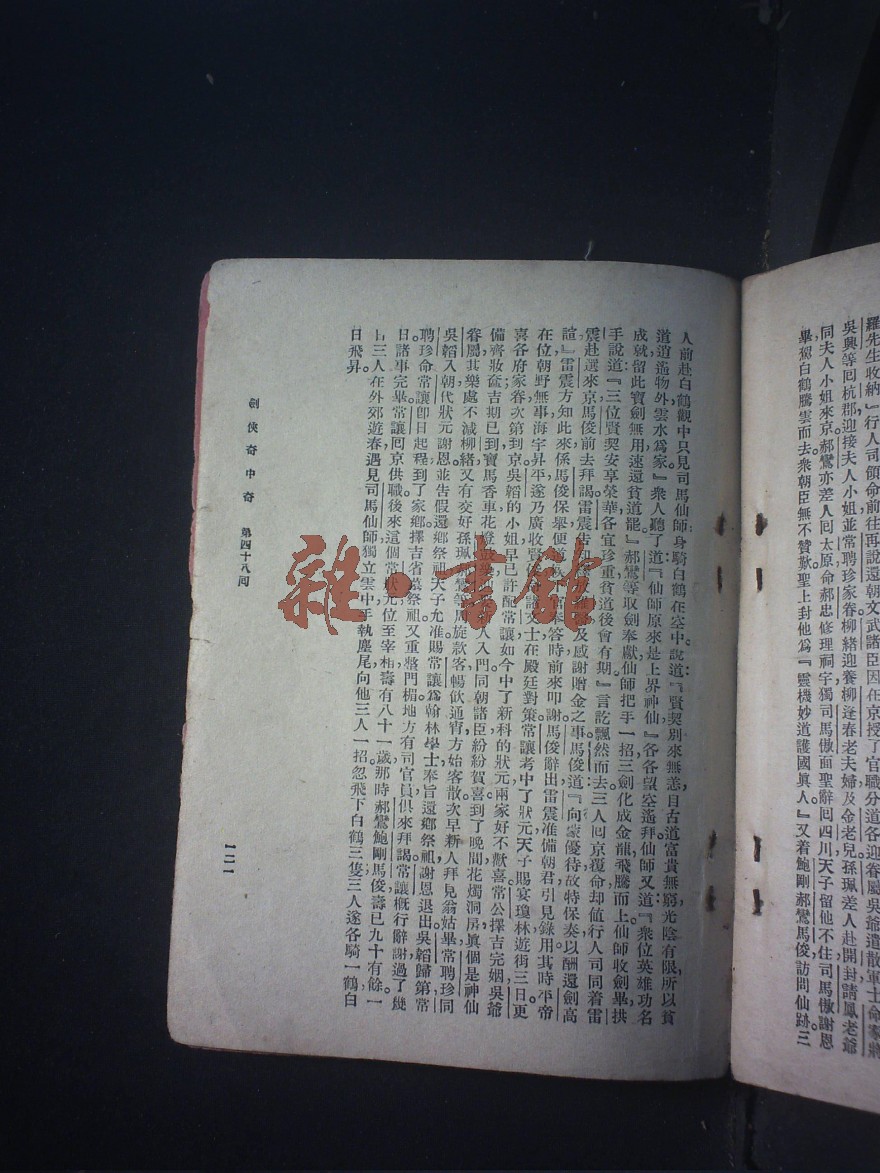 羅先生收納』行人司領命前往再說還朝文武諸臣因在京授了官職分道各迎眷屬吳爺遣散軍士命家將
吳興等囘杭郡迎接夫人小姐並常聘珍家眷柳緒迎養柳逢春老夫婦及金老兒孫珮差人赴開封請鳳老爺
同夫人小姐來京郝鸞亦差人囘太原命郝忠修理祠宇獨司馬傲面聖辭囘四川天子留他不住司馬傲謝恩
畢駕白鶴騰雲而去衆朝臣無不贊歎聖上封他爲『靈機妙道護國眞人』又着鮑剛郝鸞馬俊訪問仙跡三
人前赴白鶴觀中只見司馬仙師身騎白鶴在空中說道『賢契別來無恙自古道富貴無窮光陰有限所以貧
道逍遙物外雲水爲家』衆人聽了道『仙師原來是上界神仙』各各望空遙拜仙師又道『衆位英雄功名
成就留此寶劍無用速還貧道罷』郝鸞等取劍奉獻仙師把手一招三劍化成金龍飛騰而上仙師收劍畢拱
手說道『三位賢契安享榮華各宜珍重貧道後會有期』言訖飄然而去三人囘京覆命却値行人司同着雷
震赴選來京馬俊前去拜謁雷震告及感謝贈金之事馬俊道『向蒙優待故特保奏以酬還劍高
誼』雷震方知此來係馬俊保舉便道奉答時前來叩謝馬俊辭出雷震准備朝君引見錄用其時平帝
在位朝野無事海宇昇平遂乃廣收賢文士在殿廷對策常讓考中了狀元天子賜宴瓊林遊街三日更
喜各府家眷次第到京吳韜的小姐早已許配常讓如今中了新科的狀元兩家好不歡喜常公擇吉完姻吳爺
備齊妝奩吉期已到寶馬香車花燈人入門同朝諸臣紛紛賀喜到了晚間花燭洞房眞個是神仙
眷屬其樂處不減柳緒又有交好孫珮等周旋款客暢飲通宵方始客散次早新人拜見翁姑畢常聘珍同
吳韜入朝代狀元謝恩並告假還鄉祭祖天子允准賜常讓爲翰林學士奉旨還鄉祭祖謝恩退出吳韜歸第常
聘珍命常讓卽日起程到了家鄉擇吉省墓祭祖又重整門楣地方有司官員俱來拜謁常讓槪行辭謝過了幾
日諸事完畢常讓囘京供職後來這個常狀元位至宰相壽有八十一歲那時郝鸞鮑剛馬俊壽已九十有餘一
日三人在外郊遊春遇見司馬仙師獨立雲中手執塵尾向他三人一招忽飛下白鶴三隻三人遂各騎一鶴白
日飛昇
劍俠奇中奇　第四十八囘
一二一
雜·書館